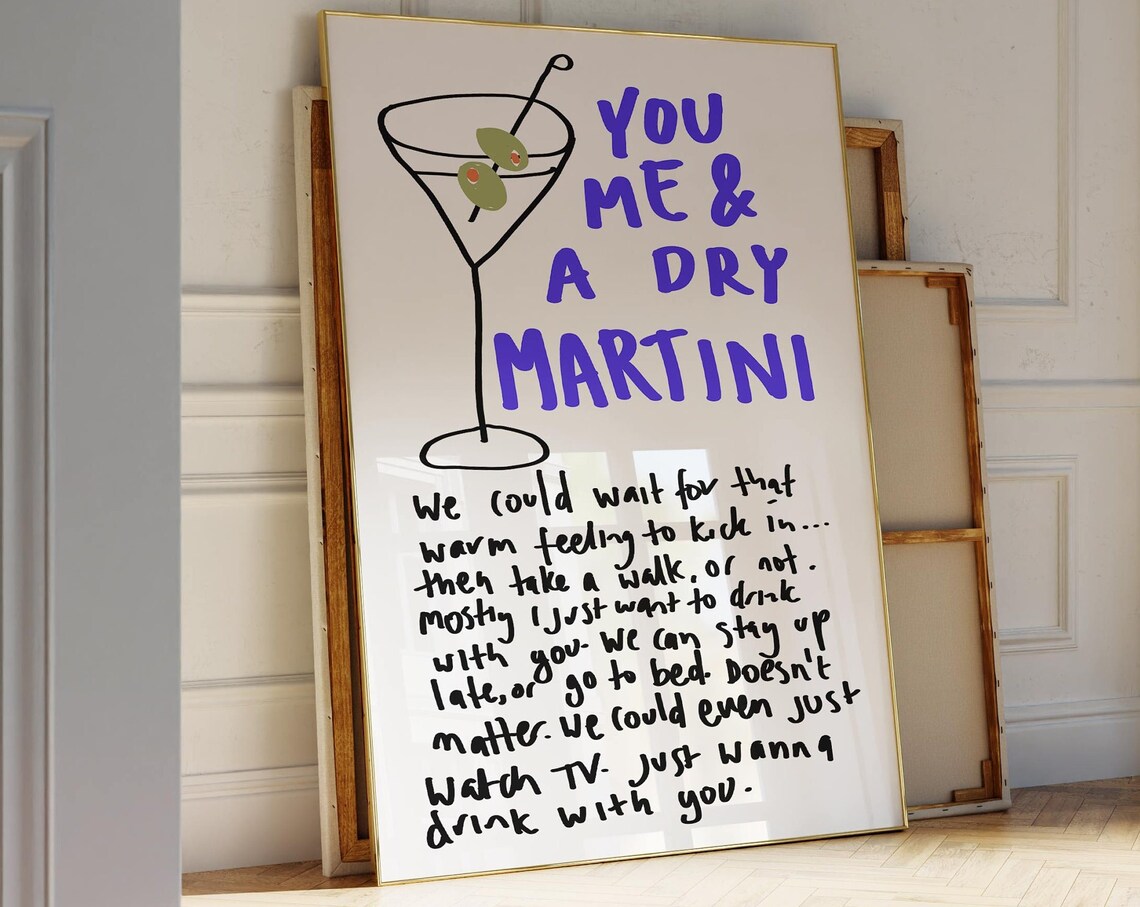 YOU
ME &
A DRY
MARTINI
we could wait for that
warm feeling to kick in...
then take a walk, or not.
mostly I just want to drink
with you. we can stay up
late, or go to bed. Doesn't
matter. we could even just
watch TV. just wanna
drink with you.